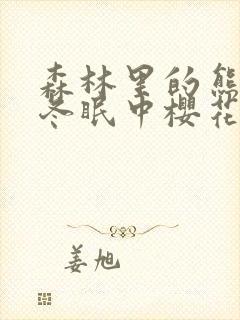 森林里的熊
冬眠中樱花
姜旭